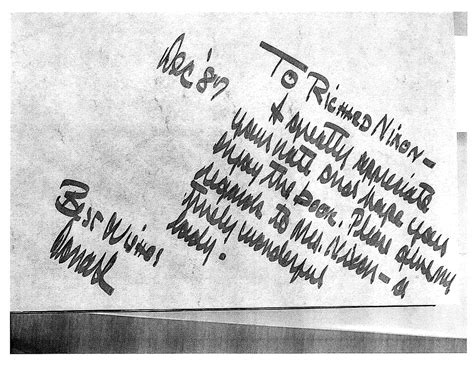 Dec '87
To Richard Nixon –
I greatly appreciate
your note and hope you
enjoy the book. Please give my
regards to Mrs. Nixon – a
truly wonderful
lady.
Best Wishes
Donald